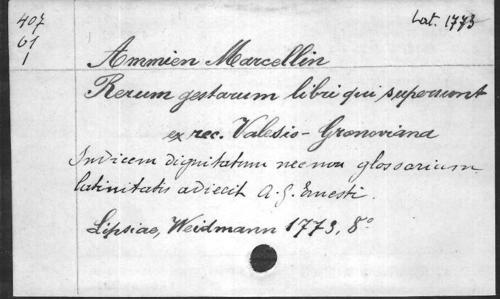 407
61
1
Lat. 1773
Ammien Marcellin
Rerum gestarum libri qui supersunt
ex rec. Valesio-Gronoviana
Indicem dignitatum nec non glossarium
latinitatis adiecit A. G. Ernesti.
Lipsiae, Weidmann 1773, 8º